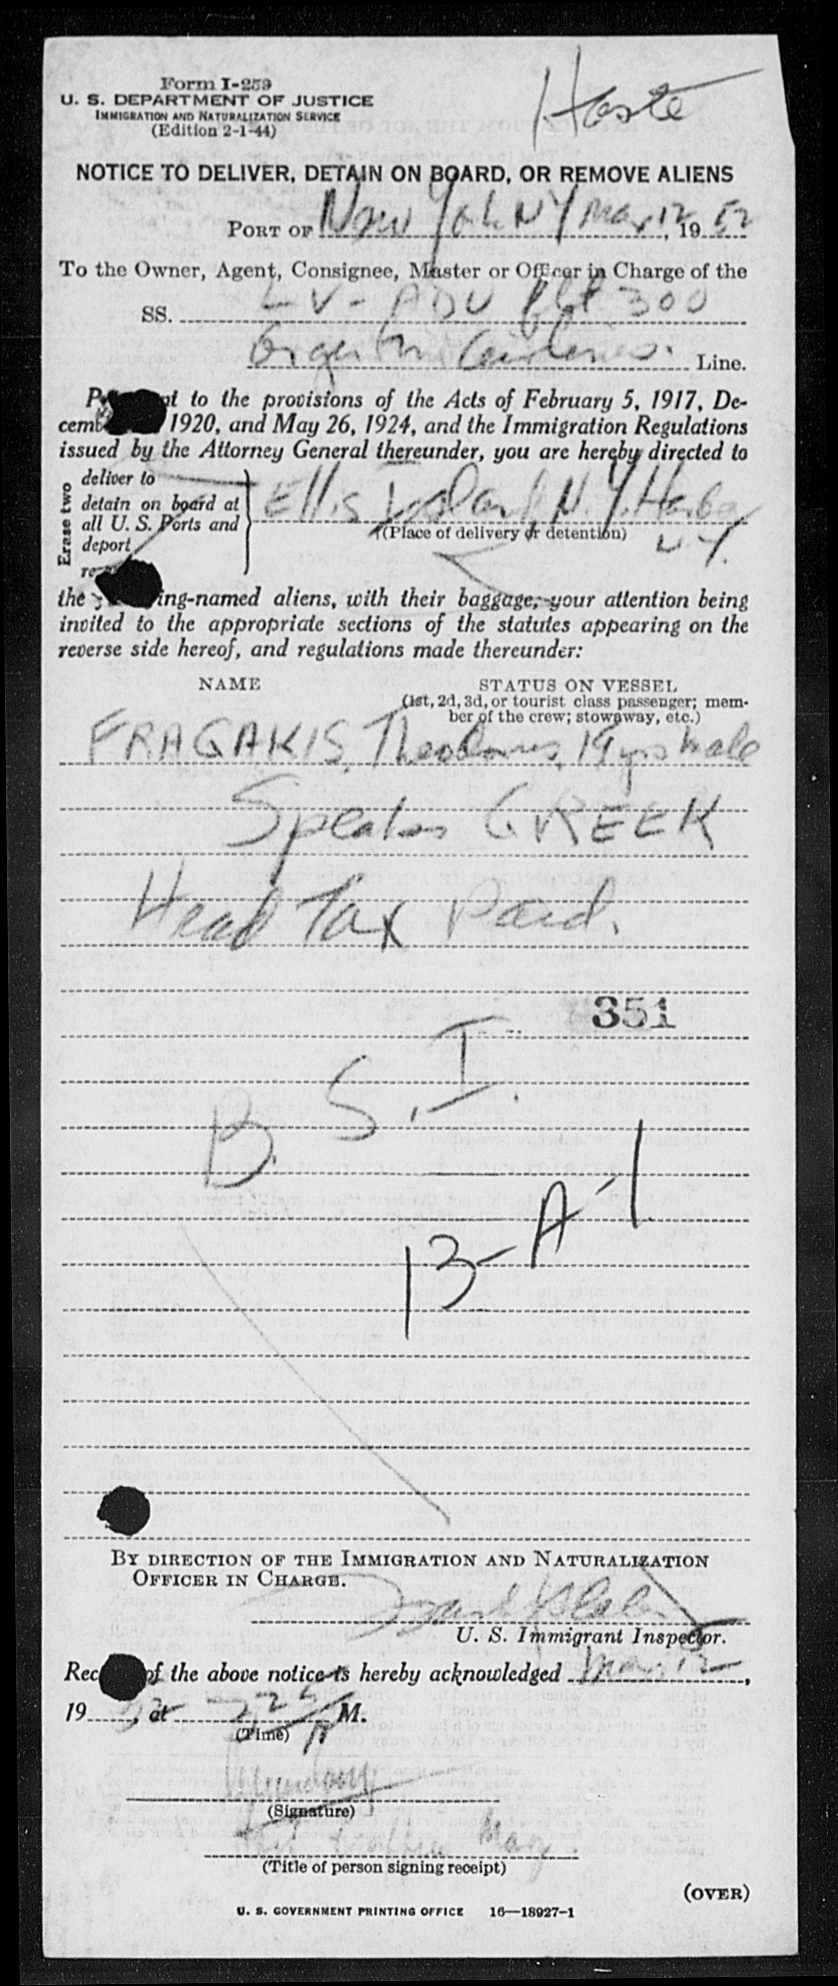 Form I-259
U. S. DEPARTMENT OF JUSTICE
IMMIGRATION AND NATURALIZATION SERVICE
(Edition 2-1-44)
NOTICE TO DELIVER, DETAIN ON BOARD, OR REMOVE ALIENS
PORT OF New York NY Mar 12, 1952
To the Owner, Agent, Consignee, Master or Officer in Charge of the
SS. LV-ADU flt 300
Argentine Airlines. Line.
P t to the provisions of the Acts of February 5, 1917, De-
cemb 1920, and May 26, 1924, and the Immigration Regulations
issued by the Attorney General thereunder, you are hereby directed to
Erase two
deliver to
detain on board at
all U. S. Ports and
deport
re
Ellis Island, N. Y. Harbor
N Y.
(Place of delivery or detention)
the ing-named aliens, with their baggage, your attention being
invited to the appropriate sections of the statutes appearing on the
reverse side hereof, and regulations made thereunder:
NAME STATUS ON VESSEL
(1st, 2d, 3d, or tourist class passenger; mem-
ber of the crew; stowaway, etc.)
FRAGAKIS, Theodoros, 19 yrs male
Speaks GREEK
Head Tax Paid.
351
B. S. I.
13-A-1
BY DIRECTION OF THE IMMIGRATION AND NATURALIZATION
OFFICER IN CHARGE.
U. S. Immigrant Inspector.
Rec of the above notice is hereby acknowledged Mar 12,
19 52, at M.
(Time)
(Signature)
(Title of person signing receipt)
(OVER)
U. S. GOVERNMENT PRINTING OFFICE 16—18927-1